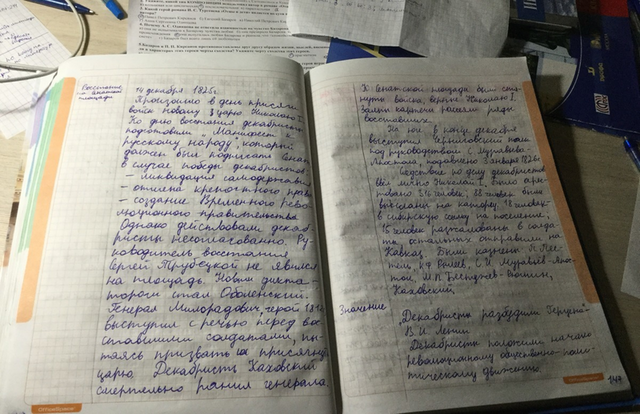 Восстание
на Сенатской
площади
14 декабря 1825г.
Произошло в день присяги
войск новому царю Николаю I.
Ко дню восстания декабристы
подготовили "Манифест к
русскому народу", который
должен был подписать Сенат.
В случае победы декабристов
- ликвидация самодержавия
- отмена крепостного права
- создание Временного рево-
люционного правительства
Однако действовали декаб-
ристы несогласованно. Ру-
ководитель восстания
Сергей Трубецкой не явился
на площадь. Новым дикта-
тором стал Оболенский.
Генерал Милорадович, герой 1812
выступил с речью перед вос-
ставшими солдатами, пы-
таясь призвать их присягнуть
царю. Декабрист Каховский
смертельно ранил генерала.
К Сенатской площади были стя-
нуты войска, верные Николаю I.
Залпы картечи рассеяли ряды
восставших.
На юге в конце декабря
выступил Черниговский полк
под руководством С. Муравьёва-
Апостола подавлено 3 января 1826г.
Следствие по делу декабристов
вёл лично Николай I, было аре-
стовано 316 человек, 88 человек было
высланы на каторгу, 18 человек
в сибирскую ссылку на поселение,
15 человек разжалованы в солда-
ты остальных отправили на
Кавказ. Были казнены: П. Пес-
тель, К.Ф. Рылеев, С.И. Муравьёв-Апос-
тол, М.П. Бестужев-Рюмин,
Каховский.
Значение
"Декабристы разбудили Герцена"
В.И. Ленин
Декабристы положили начало
революционному общественно-поли-
тическому движению.
147